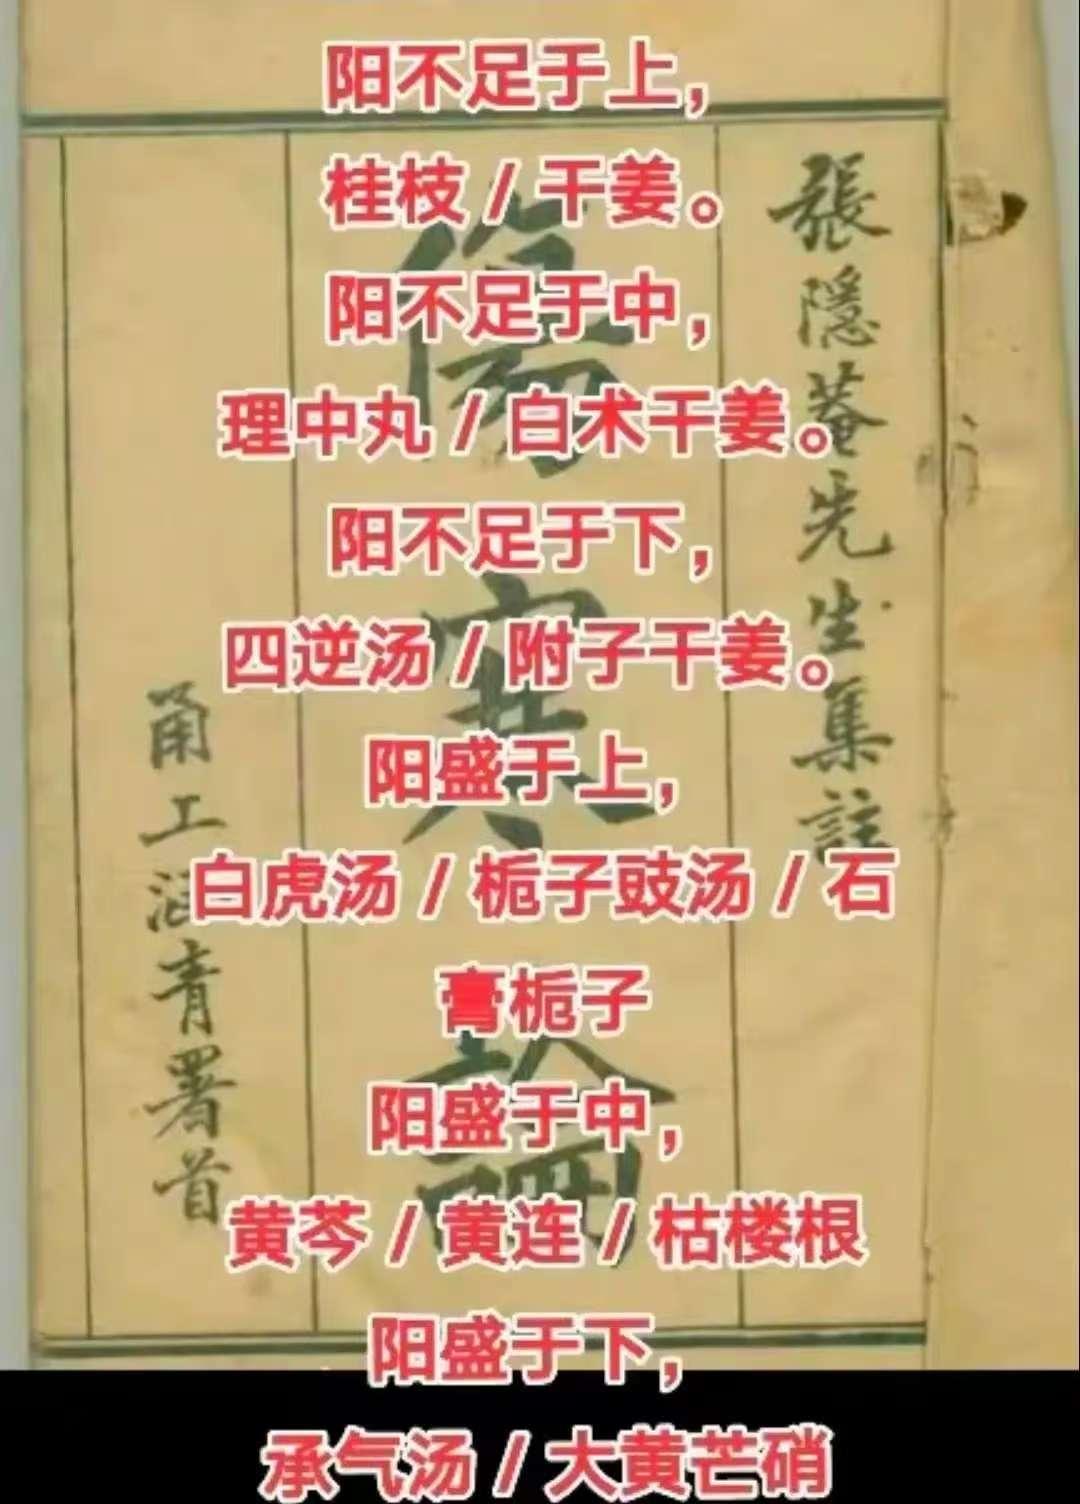 阳不足于上，
桂枝/干姜。
阳不足于中，
理中丸/白术干姜。
阳不足于下，
四逆汤/附子干姜。
阳盛于上，
白虎汤/栀子豉汤/石
膏栀子
阳盛于中，
黄芩/黄连/枯楼根
阳盛于下，
承气汤/大黄芒硝
張隱菴先生集註
傷寒論
青署首